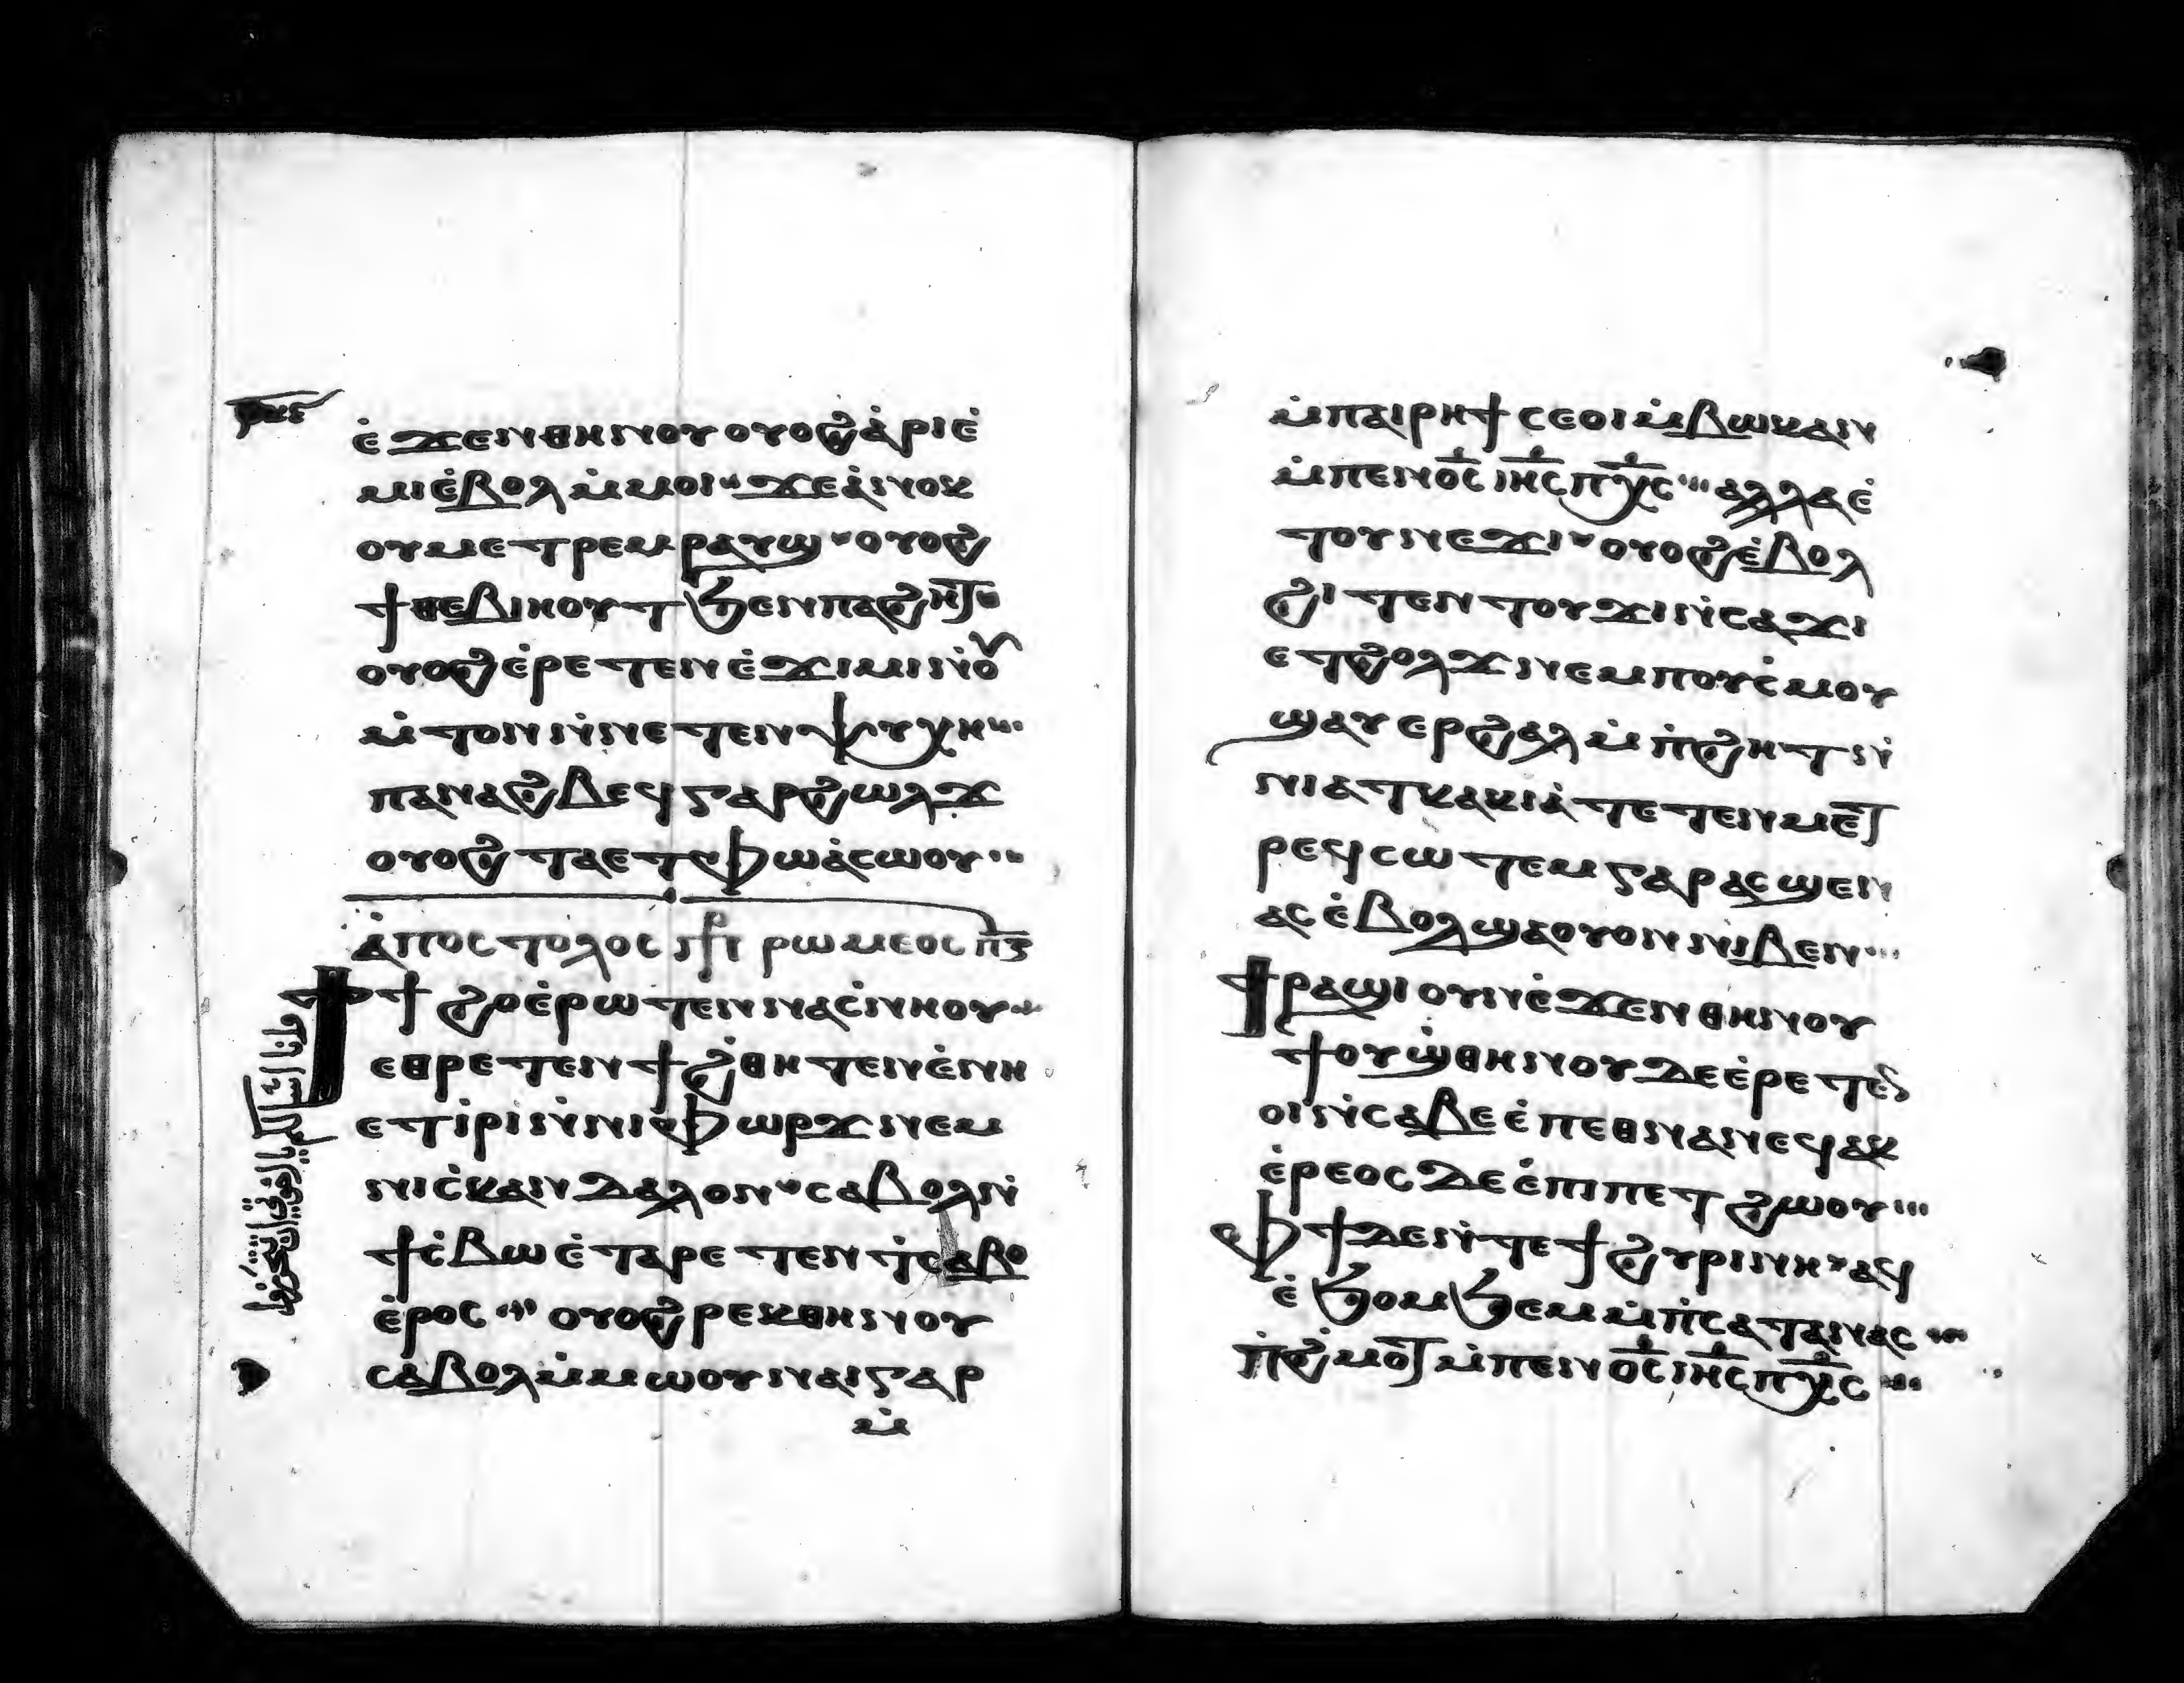 ⲉ̀ϫⲉⲛⲑⲏⲛⲟⲩ ⲟⲩⲟϩ ⲁ̀ⲣⲓⲉ̀
ⲙⲓⲉ̀ⲃⲟⲗ ⲙ̀ⲙⲟⲓ ϫⲉⲁ̀ⲛⲟⲕ
ⲟⲩⲙⲉⲧⲣⲉⲙⲣⲁⲩϣ ⲟⲩⲟϩ
ϯⲑⲉⲃⲓⲏⲟⲩⲧ ϧⲉⲛⲡⲁϩⲏⲧ
ⲟⲩⲟϩ ⲉ̀ⲣⲉⲧⲉⲛⲉ̀ϫⲓⲙⲓⲛ̀ⲟⲩ
ⲙ̀ⲧⲟⲛ ⲛ̀ⲛⲉⲧⲉⲛⲯⲩⲭⲏ
ⲡⲁⲛⲁϩⲃⲉϥ ⲅⲁⲣ ϩⲱⲗϫ
ⲟⲩⲟϩ ⲧⲁⲉⲧⲫⲱ ⲁ̀ⲥⲱⲟⲩ
ⲁ̀ⲡⲟⲥⲧⲟⲗⲟⲥ ⲣⲱⲙⲉⲟⲥ ⲡ̅ⲍ̅
ϯϯϩⲟ ⲉ̀ⲣⲱⲧⲉⲛ ⲛⲁⲥ̀ⲛⲏⲟⲩ
ⲉⲑⲣⲉⲧⲉⲛϯϩ̀ⲑⲏⲧⲉⲛ ⲉ̀ⲛⲏ
ⲉⲧⲓ̀ⲣⲓ ⲛ̀ⲛⲓⲫⲱⲣϫ ⲛⲉⲙ
ⲛⲓⲥ̀ⲕⲁⲛⲇⲁⲗⲟⲛ ⲥⲁⲃⲟⲗ ⲛ̀
ϯⲥ̀ⲃⲱ ⲉ̀ⲧⲁⲣⲉⲧⲉⲛⲧ̀ⲥⲁⲃⲟ
ⲉ̀ⲣⲟⲥ ⲟⲩⲟϩ ⲣⲉⲕⲑⲏⲛⲟⲩ
ⲥⲁⲃⲟⲗ ⲙ̀ⲙⲱⲟⲩ ⲛⲁⲓ ⲅⲁⲣ
ⲙ̀
ⲙ̀ⲡⲁⲓⲣⲏϯ ⲥⲉⲟⲓ ⲙ̀ⲃⲱⲕ ⲁⲛ
ⲙ̀ⲡⲉⲛⲟ̅ⲥ̅ ⲓⲏ̅ⲥ̅ ⲡⲭ̅ⲥ̅ ⲁⲗⲗⲁ ⲉ̀
ⲧⲟⲩⲛⲉϫⲓ ⲟⲩⲟϩ ⲉ̀ⲃⲟⲗ
ϩⲓⲧⲉⲛ ⲧⲟⲩϫⲓⲛ̀ⲥⲁϫⲓ
ⲉⲧϩⲟⲗϫ ⲛⲉⲙ ⲡⲟⲩⲥ̀ⲙⲟⲩ
ϣⲁⲩⲉⲣϩⲁⲗ ⲙ̀ⲡ̀ϩⲏⲧ ⲛ̀
ⲛⲓⲁⲧⲕⲁⲕⲓⲁ̀ ⲧⲉⲧⲉⲛⲙⲉⲧ
ⲣⲉϥⲥⲱⲧⲉⲙ ⲅⲁⲣ ⲁⲥϣⲉⲛ
ⲁⲥ ⲉ̀ⲃⲟⲗ ϣⲁⲟⲩⲟⲛ ⲛⲓⲃⲉⲛ
ϯⲣⲁϣⲓ ⲟⲩⲛ ⲉ̀ϫⲉⲛⲑⲏⲛⲟⲩ
ϯⲟⲩⲱ̀ϣⲑⲏⲛⲟⲩ ⲇⲉ ⲉ̀ⲣⲉⲧⲉⲛ
ⲟⲓ ⲛ̀ⲥⲁⲃⲉ ⲉ̀ⲡⲉⲑⲛⲁⲛⲉϥ ⲁⲕ
ⲉ̀ⲣⲉⲟⲥ ⲇⲉ ⲉ̀ⲡⲓⲡⲉⲧϩⲱⲟⲩ
ⲫϯ ⲇⲉ ⲛ̀ⲧⲉϯϩⲩⲣⲓⲛⲏ ⲁϥ
ⲉ̀ϧⲟⲙϧⲉⲙ ⲙ̀ⲡ̀ⲥⲁⲧⲁⲛⲁⲥ
ⲡ̀ϩ̀ⲙⲟⲧ ⲙ̀ⲡⲉⲛⲟ̅ⲥ̅ ⲓⲏ̅ⲥ̅ ⲡⲭ̅ⲥ̅